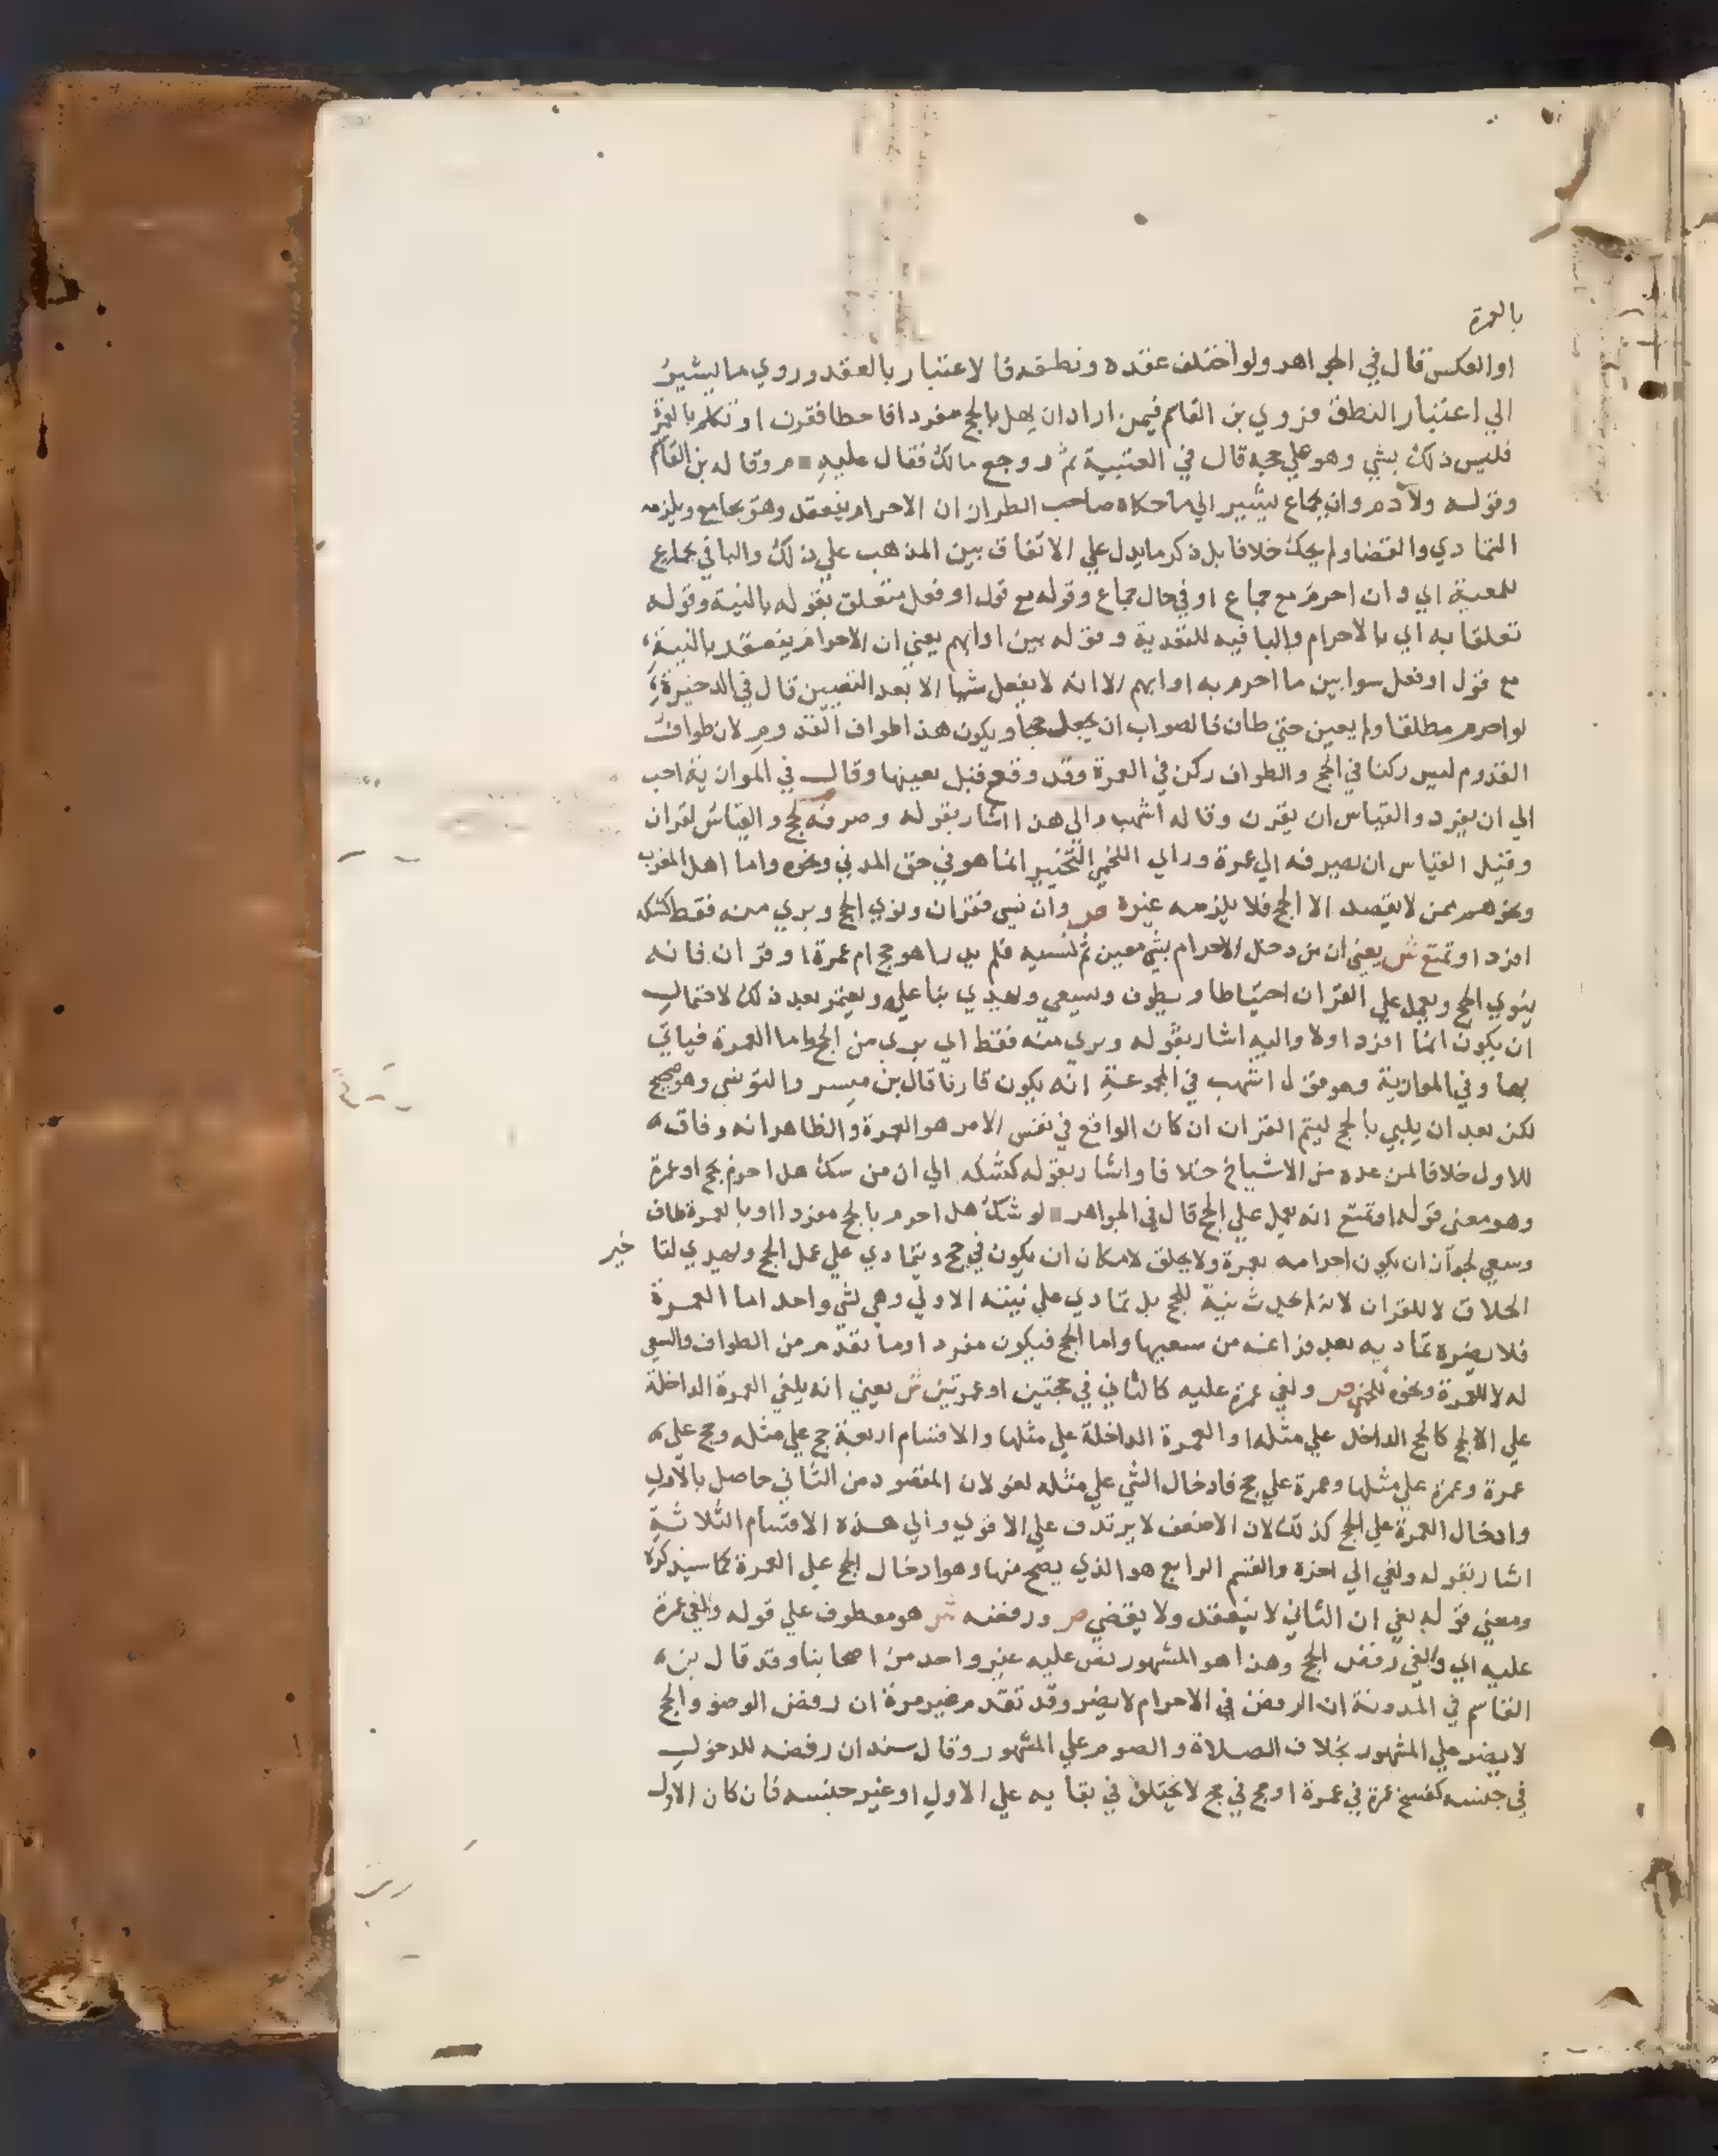 بالعمرة
او العكس قال في الجواهر ولو اختلف عقده ونطقه فالاعتبار بالعقد وروي ما يشير
الي اعتبار النطق فروي بن القاسم فيمن اراد ان يهل بالحج مفردا فاخطا فقرن او تكلم بالعمرة
فليس ذلك بشي وهو علي حجه قال في العتبية ثم رجع مالك فقال عليه دم وقاله بن القاسم
وقوله ولا دم وان بجماع يشير الي ما حكاه صاحب الطراز ان الاحرام ينعقد وهو يجامع ويلزمه
التمادي والقضا ولم يحك خلافا بل ذكر ما يدل علي الاتفاق بين المذهب علي ذلك والبا في بجماع
للمعية اي وان احرم مع جماع او في حال جماع وقوله مع قول او فعل متعلق بقوله بالنية وقوله
تعلقا به اي بالاحرام والبا فيه للتعدية وقوله بين او ابهم يعني ان الاحرام ينعقد بالنية
مع قول او فعل سوا بين ما احرم به او ابهم الا انه لا يفعل شيا الا بعد التعيين قال في الدخيرة
لو احرم مطلقا ولم يعين حتي طاف فالصواب ان يجعل حجا ويكون هذا طواف القدوم لان طواف
القدوم ليس ركنا في الحج والطواف ركن في العمرة وقد وقع قبل تعينها وقال في الموازية احب
الي ان يفرد والقياس ان يقرن وقاله اشهب والي هذا اشار بقوله وصرفه لحج والقياس لقران
وقيل القياس ان يصرفه الي عمرة وراي اللخمي التخيير انما هو في حق المدني ونحوه واما اهل المغرب
ونحوهم ممن لا يقصد الا الحج فلا يلزمه غيره ص وان نسي فقران ونوي الحج وبري منه فقط كشكه
افرد او تمتع ش يعني ان من دخل الاحرام بشي معين ثم نسيه فلم يدر اهو حج ام عمرة او قران فانه
ينوي الحج ويعمل علي القران احتياطا ويطوف ويسعي ويهدي بنا عليه ويعتمر بعد ذلك لاحتمال
ان يكون انما افرد اولا واليه اشار بقوله وبري منه فقط اي بري من الحج واما العمرة فياتي
بها وفي الموازية وهو قول اشهب في المجموعة انه يكون قارنا قال بن ميسر والتونسي وهو صحيح
لكن بعد ان يلبي بالحج ليتم القران ان كان الواقع في نفس الامر هو العمرة والظاهر انه وفاق
للاول خلافا لمن عده من الاشياخ خلافا واشار بقوله كشكه الي ان من شك هل احرم بحج او عمرة
وهو معني قوله او تمتع انه يعمل علي الحج قال في الجواهر لو شك هل احرم بالحج مفردا او بالعمرة طاف
وسعي لجواز ان يكون احرامه بعمرة ولا يحلق لامكان ان يكون في حج ويتمادي علي عمل الحج ويهدي لتاخير
الحلاق لا للقران لانه لم يحدث نية للحج بل تمادي علي نيته الاولي وهي لشي واحد اما العمرة
فلا يضره تماديه بعد فراغه من سعيها واما الحج فيكون مفردا وما تقدم من الطواف والسعي
له لا للعمرة ونحوه للخمي ص ولغي عمرة عليه كالثاني في حجتين او عمرتين ش يعني انه يلغي العمرة الداخلة
علي الحج كالحج الداخل علي مثله او العمرة الداخلة علي مثلها والاقسام اربعة حج علي مثله وحج علي
عمرة وعمرة علي مثلها وعمرة علي حج فادخال الشي علي مثله لغو لان المقصود من الثاني حاصل بالاول
وادخال العمرة علي الحج كذلك لان الاضعف لا يرتدف علي الاقوي والي هذه الاقسام الثلاثة
اشار بقوله ولغي الي اخره والقسم الرابع هو الذي يصح منها وهو ادخال الحج علي العمرة كما سيذكره
ومعني قوله لغي ان الثاني لا ينعقد ولا يقضي ص ورفضه ش هو معطوف علي قوله والغي عمرة
عليه اي والغي رفض الحج وهذا هو المشهور نص عليه غير واحد من اصحابنا وقد قال بن
القاسم في المدونة ان الرفض في الاحرام لا يضر وقد تقدم غير مرة ان رفض الوضو والحج
لا يضر علي المشهور بخلاف الصلاة والصوم علي المشهور وقال سند ان رفضه للدخول
في جنسه كفسخ عمرة في عمرة او حج في حج لا يختلف في بقايه علي الاول او غير جنسه فان كان الاول